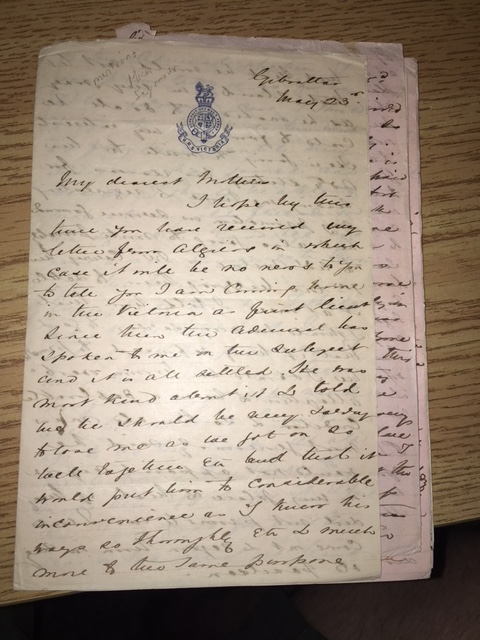 Gibraltar
May 23rd
H.M.S. VICTORIA
My dearest Mother
I hope by this
time you have received my
letter from Algiers in which
case it will be no news to you
to tell you I am coming home
in the Victoria as first Lieut
Since then the Admiral has
spoken to me on the subject
and it is all settled He was
most kind about it & told
me he should be very sorry
to lose me as we got on so
well together &c and that it
would put him to considerable
inconvenience as I knew his
ways so thoroughly &c & much
more to the same purpose